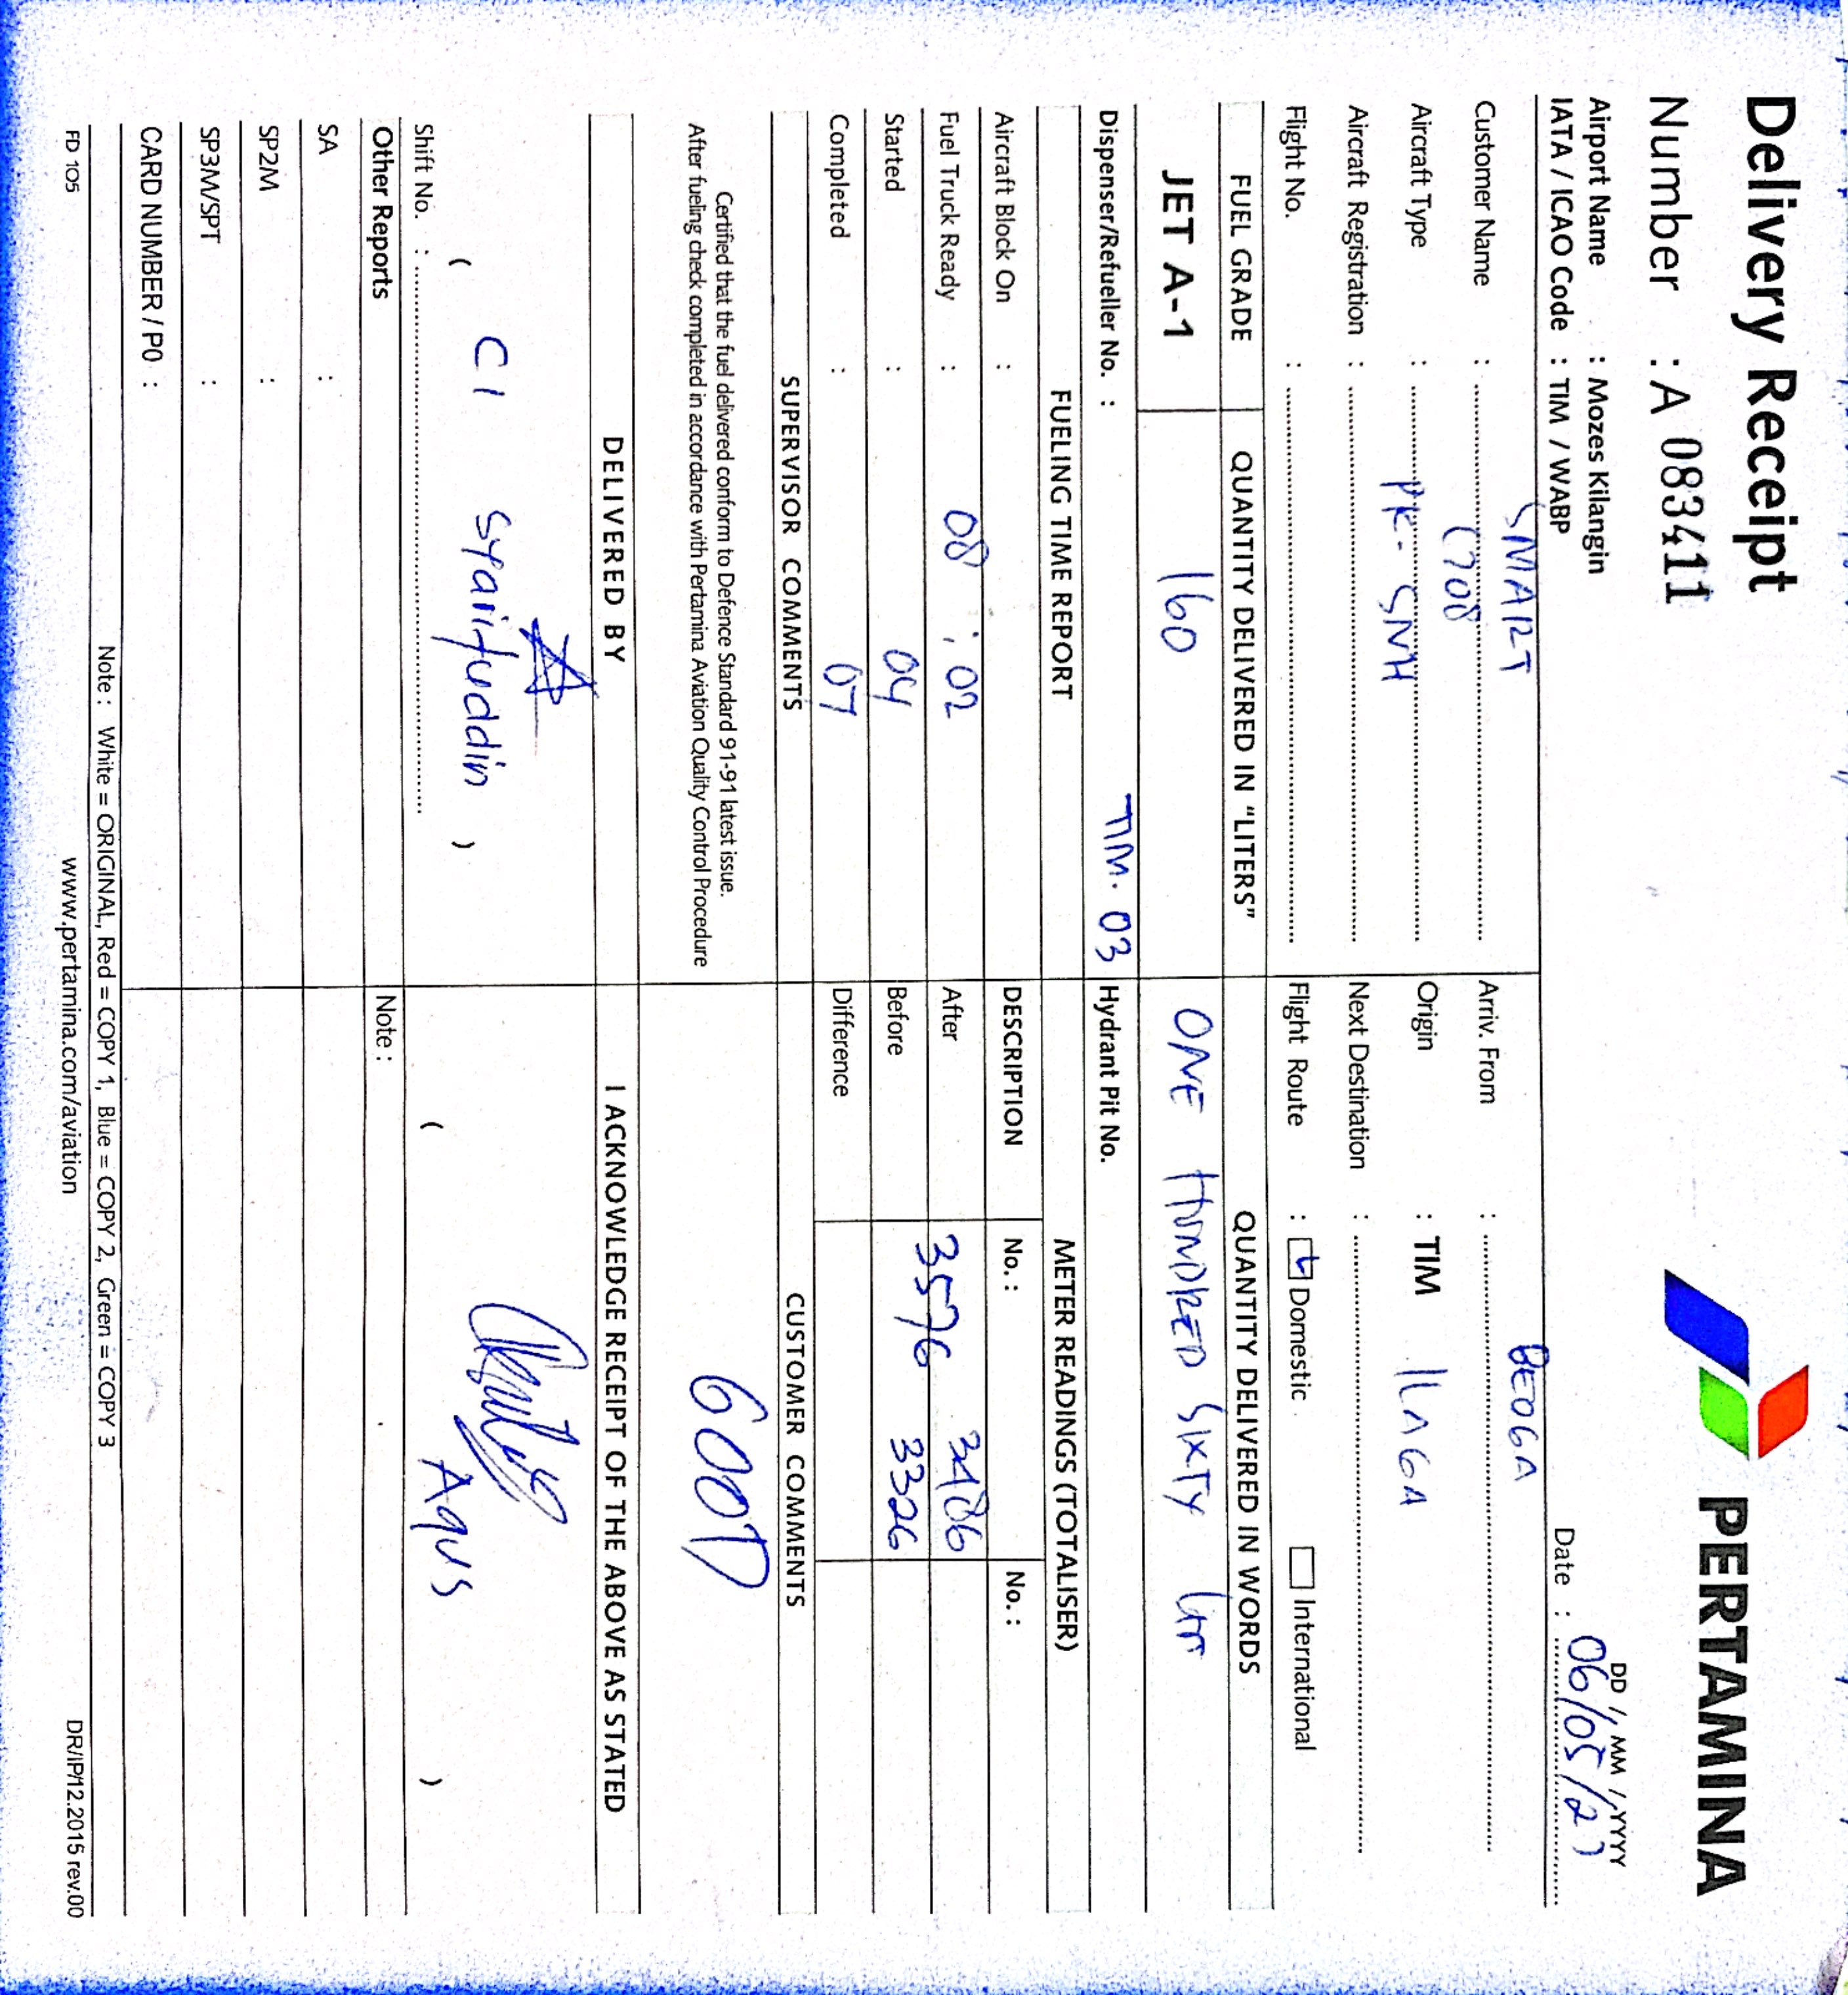 Delivery Receipt
PERTAMINA
Number : A 083411
Airport Name : Mozes Kilangin
DD / MM / YYYY
IATA / ICAO Code : TIM / WABP
Date : 06/05/23
Customer Name : SMART
Arriv. From : BEOGA
Aircraft Type : C208
Origin : TIM
Aircraft Registration : PK-SNH
Next Destination : ILAGA
Flight No. :
Flight Route : Domestic International
FUEL GRADE QUANTITY DELIVERED IN "LITERS" QUANTITY DELIVERED IN WORDS
JET A-1 160 ONE HUNDRED SIXTY LTR
Dispenser/Refueller No. : TIM. 03 Hydrant Pit No.
FUELING TIME REPORT METER READINGS (TOTALISER)
Aircraft Block On : DESCRIPTION No. : No. :
Fuel Truck Ready : 08 : 02 After 3576 3486
Started : 04 Before 3326
Completed : 07 Difference
SUPERVISOR COMMENTS CUSTOMER COMMENTS
Certified that the fuel delivered conform to Defence Standard 91-91 latest issue.
After fueling check completed in accordance with Pertamina Aviation Quality Control Procedure
GOOD
DELIVERED BY I ACKNOWLEDGE RECEIPT OF THE ABOVE AS STATED
( C1 Syaifuddin )
( Agus )
Shift No. :
Other Reports Note :
SA :
SP2M :
SP3M/SPT :
CARD NUMBER / PO :
Note : White = ORIGINAL, Red = COPY 1, Blue = COPY 2, Green = COPY 3
FD 105 www.pertamina.com/aviation DR/IP/12.2015 rev.00